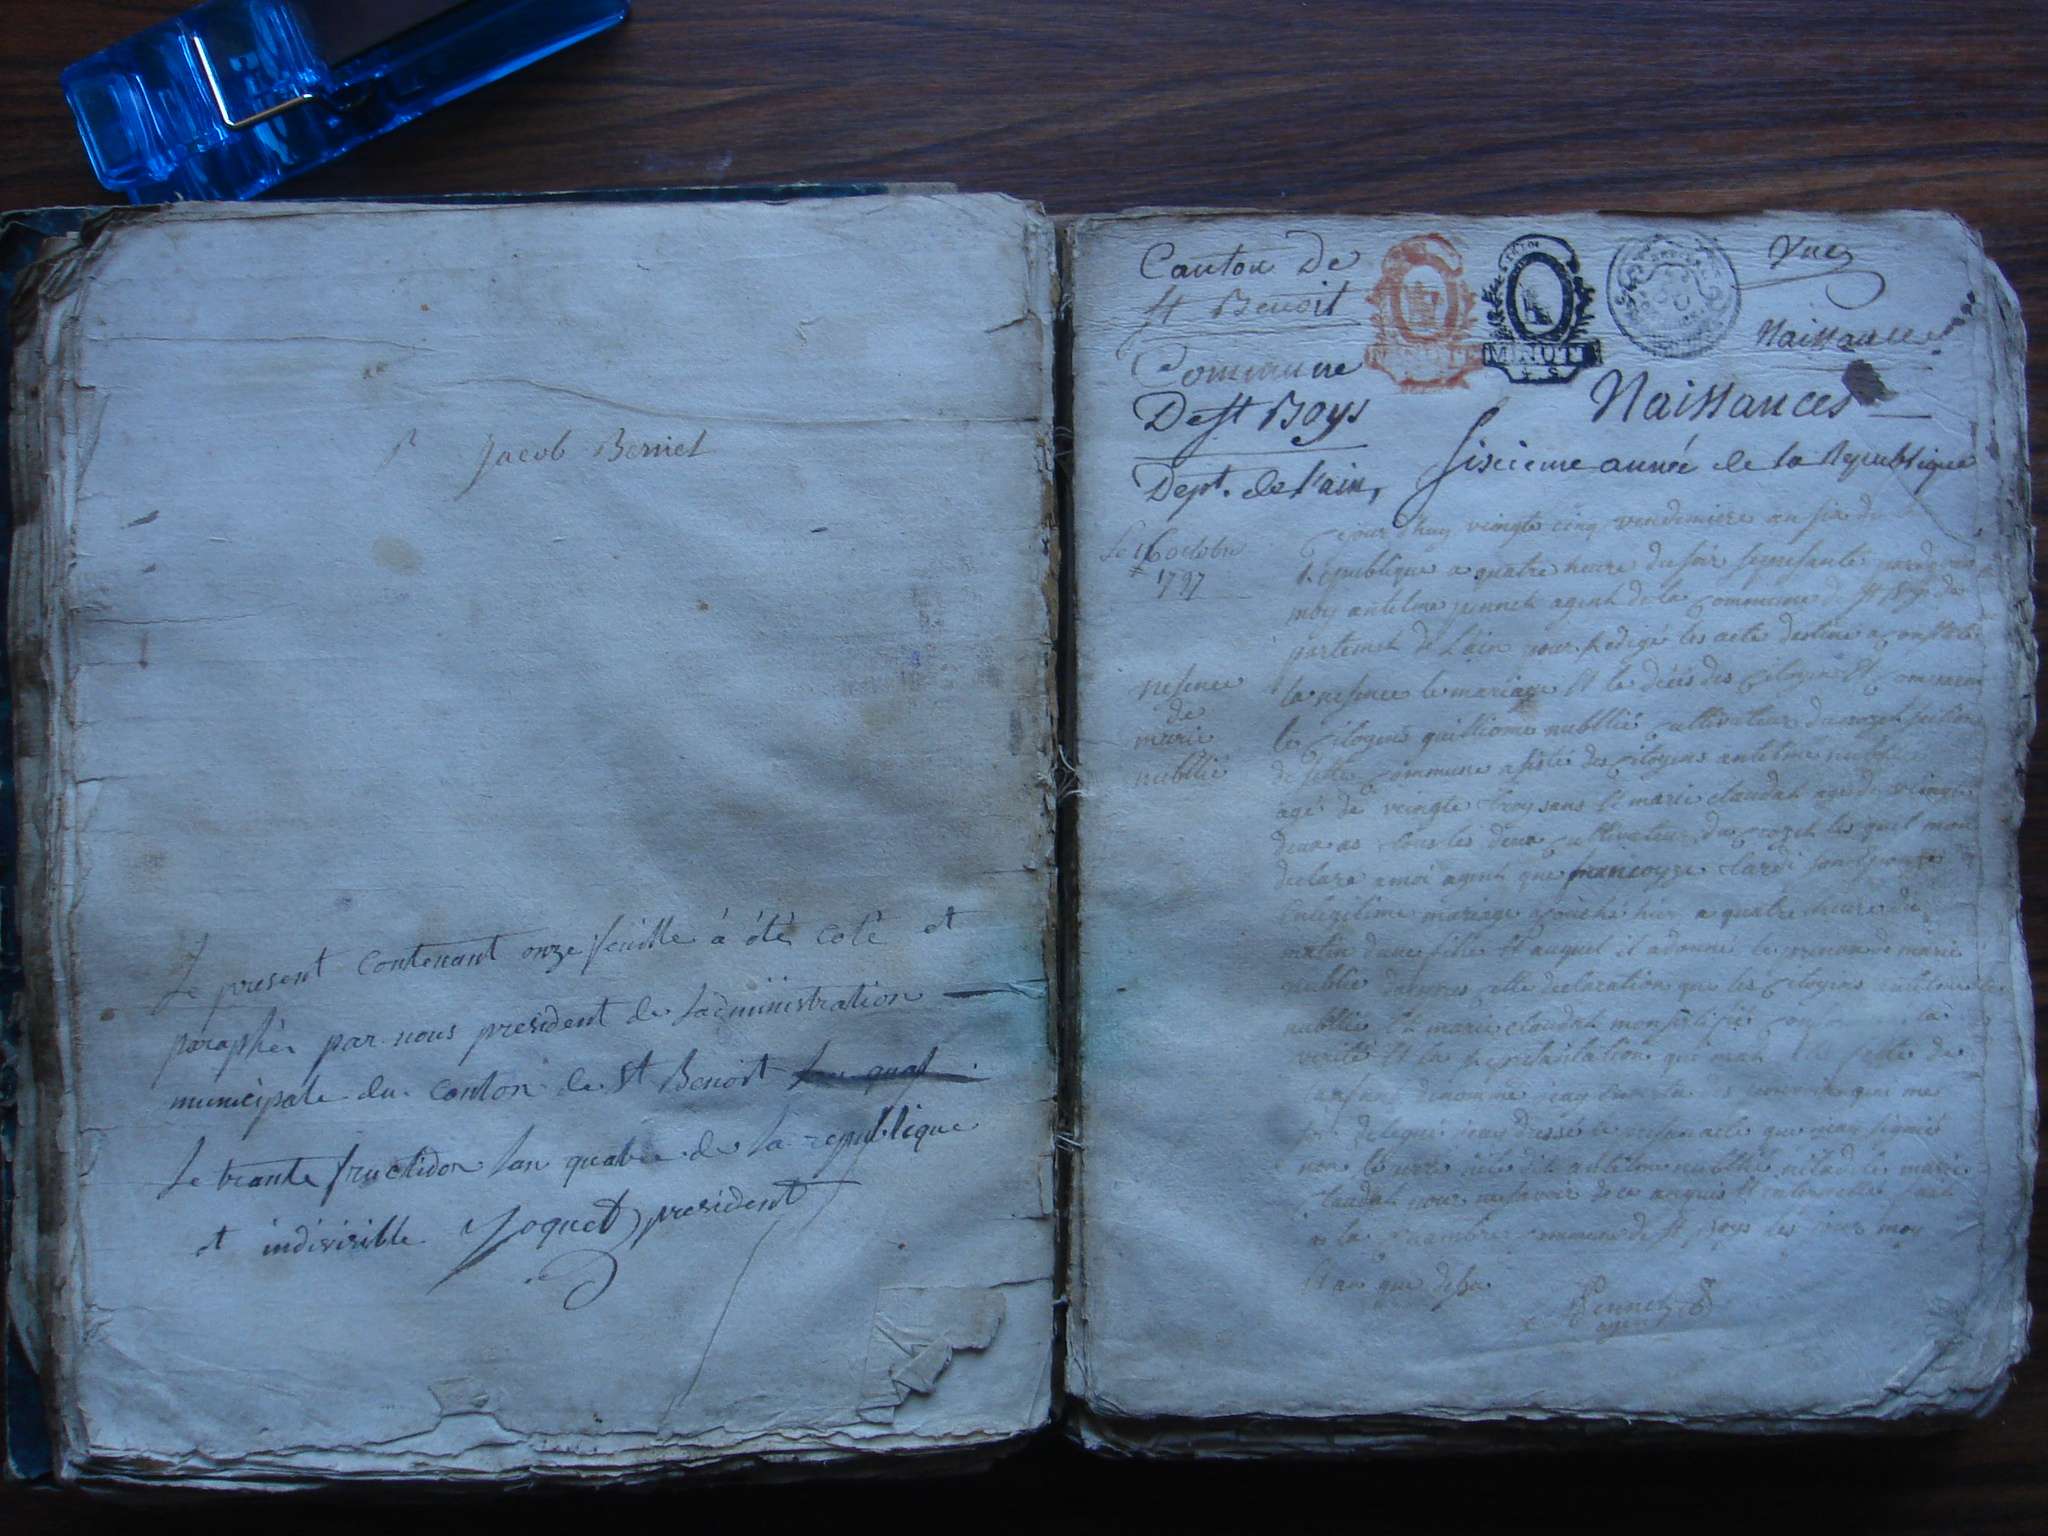 Jacob Bernet
Le present contenant onze feuille à été coté et
paraphér par nous president de Ladministration
municipale du canton de St Benoit
Le trante fructidor lan quatre de la republique
et indivisible Joquet president
Canton De
St Benoit
Commune
De St Boys
Dept. de l'ain,
MINUTE
MINUTE
Une
Naissances
Naissances
Sixieme année de la Republique
Le 16 octobre
1797
nesence
de
marie
nubllié
Cejour d'huy veingte cinq vendemiere an six de la
Republique a quatre heure du soir
moy antelme pennet agent de la Commune de St Boys de
partement de Lain pour Rediger les acte destiné a constaté
la nesence le mariage Et le décés des Citoyen Et
le Citoyen guilliome nubllié cultivateur du
de sette Commune asisté des Citoyens antelme nubllié
agé de veingte troy sans Et marie claudat agé de veingte
deux as tous les deux cultivateur du crozet les quel mon
declare a moi agent que francoyze clardi son
Enlegitime mariage acouché hier a quatre heure du
matin dune fille Et auquel il adonné le prenon de marie
nubllié daupres cette declaration que les Citoyens antelme
nubllié Et marie claudat mon sertifié conforme a la
verité Et la representation qui mat été faite de
lanfant denommé jeay les pouvoir qui me
son delegué jeay dressé le presan acte que jeay signié
non le pere ni le dit antelme nubllié ni ladite marie
claudat pour ne savoir de ce anquis Et interpellé fait
a la Chambre Commune de St Boys les jour moy
Et an que desu
Pennet
agent